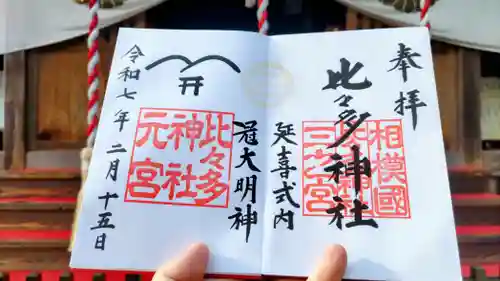 奉拝
相模國
三之宮
比々多神社
延喜式内
冠大明神
比々多
神社
元宮
令和七年二月十五日